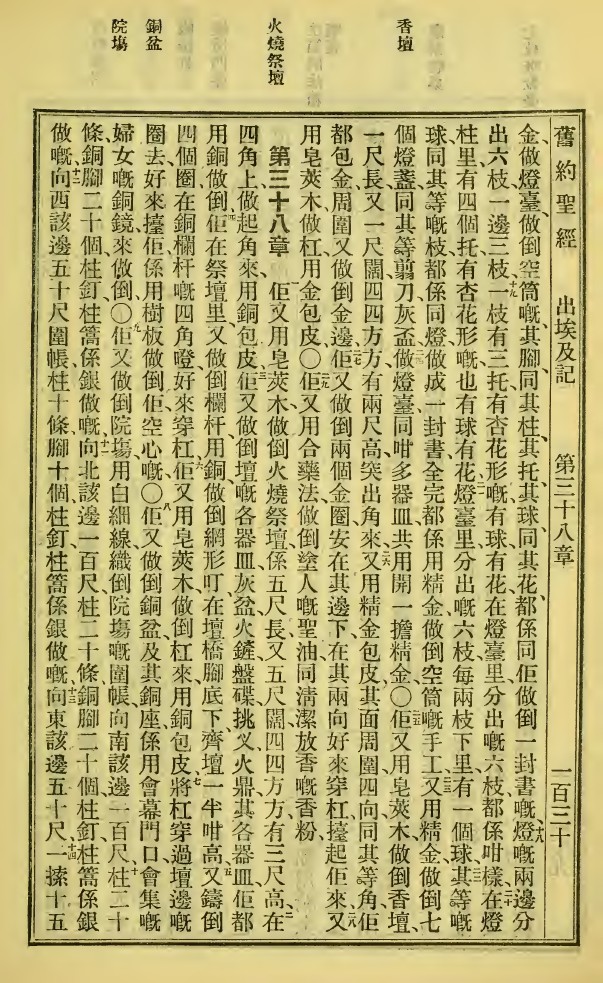 香壇
火燒祭壇
銅盆
院塲
舊約聖經 出埃及記 第三十八章 一百三十
金做燈臺、做倒空筒嘅、其腳、同其柱、其托、其球、同其花、都係同佢做倒一封書嘅、十八燈嘅兩邊分
出六枝、一邊三枝、十九一枝有三托、有杏花形嘅、有球有花、在燈臺里分出嘅六枝、都係咁樣、二十在燈
柱里有四個托、有杏花形嘅、也有球有花、二一燈臺里分出嘅六枝、每兩枝下里有一個球、二二其等嘅
球、同其等嘅枝、都係同燈做成一封書、全完都係用精金做倒空筒嘅手工、二三又用精金做倒七
個燈盞、同其等翦刀灰盃、二四做燈臺同咁多器皿、共用開一擔精金〇二五佢又用皂莢木做倒香壇、
一尺長、又一尺闊、四四方方、有兩尺高、突出角來、二六又用精金包皮其面、周圍四向、同其等角、佢
都包金、周圍又做倒金邊、二七佢又做倒兩個金圈、安在其邊下、在其兩向、好來穿杠擡起佢來、二八又
用皂莢木做杠、用金包皮〇二九佢又用合藥法做倒塗人嘅聖油、同淸潔放香嘅香粉、
第三十八章 一佢又用皂莢木做倒火燒祭壇、係五尺長、又五尺闊、四四方方、有三尺高、二在
四角上做起角來、用銅包皮佢、三又做倒壇嘅各器皿、灰盆火鏟盤碟挑叉火鼎、其各器皿佢都
用銅做倒、四佢在祭壇里又做倒欄杆、用銅做倒網形、叮在壇橋腳底下、齊壇一半咁高、五又鑄倒
四個圈、在銅欄杆嘅四角磴、好來穿杠、六佢又用皂莢木做倒杠來、用銅包皮、七將杠穿過壇邊嘅
圈去、好來擡佢、係用樹板做倒佢、空心嘅〇八佢又做倒銅盆及其銅座、係用會幕門口會集嘅
婦女嘅銅鏡來做倒〇九佢又做倒院塲、用白細線織倒院塲嘅圍帳、向南該邊一百尺、十柱二十
條、銅腳二十個、柱釘柱篙係銀做嘅、十一向北該邊一百尺、柱二十條、銅腳二十個、柱釘柱篙係銀
做嘅、十二向西該邊五十尺圍帳、柱十條、腳十個、柱釘柱篙係銀做嘅、十三向東該邊五十尺、十四一搽十五